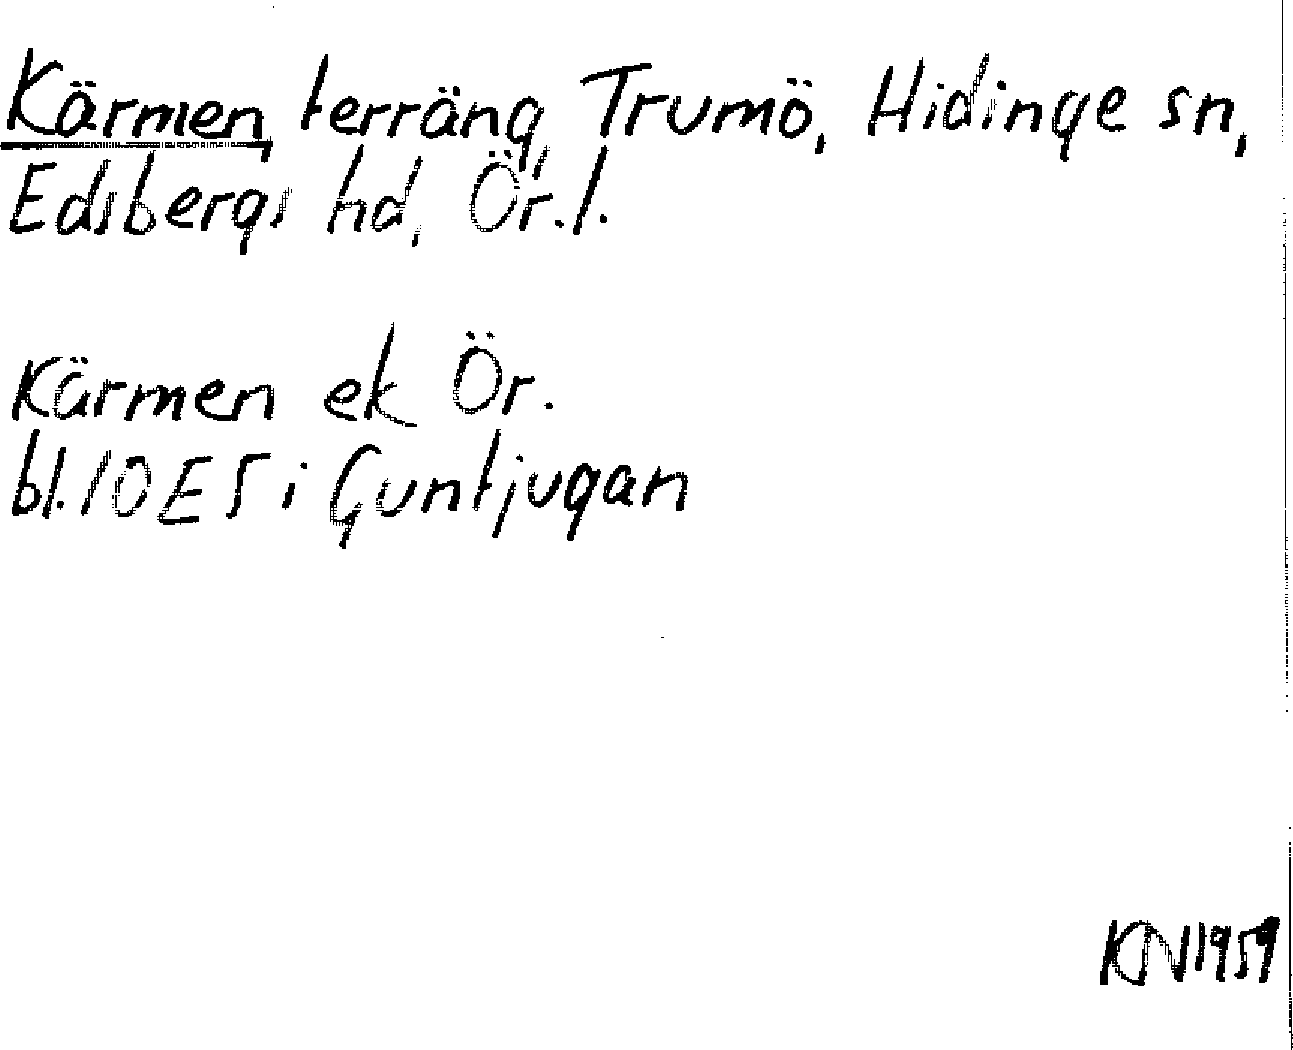 Kärmen, terräng, Trumö, Hidinge sn,
Edsbergs hd, Ör.l.
Kärmen ek Ör.
bl. 10E5 i Guntjugan
KN1959